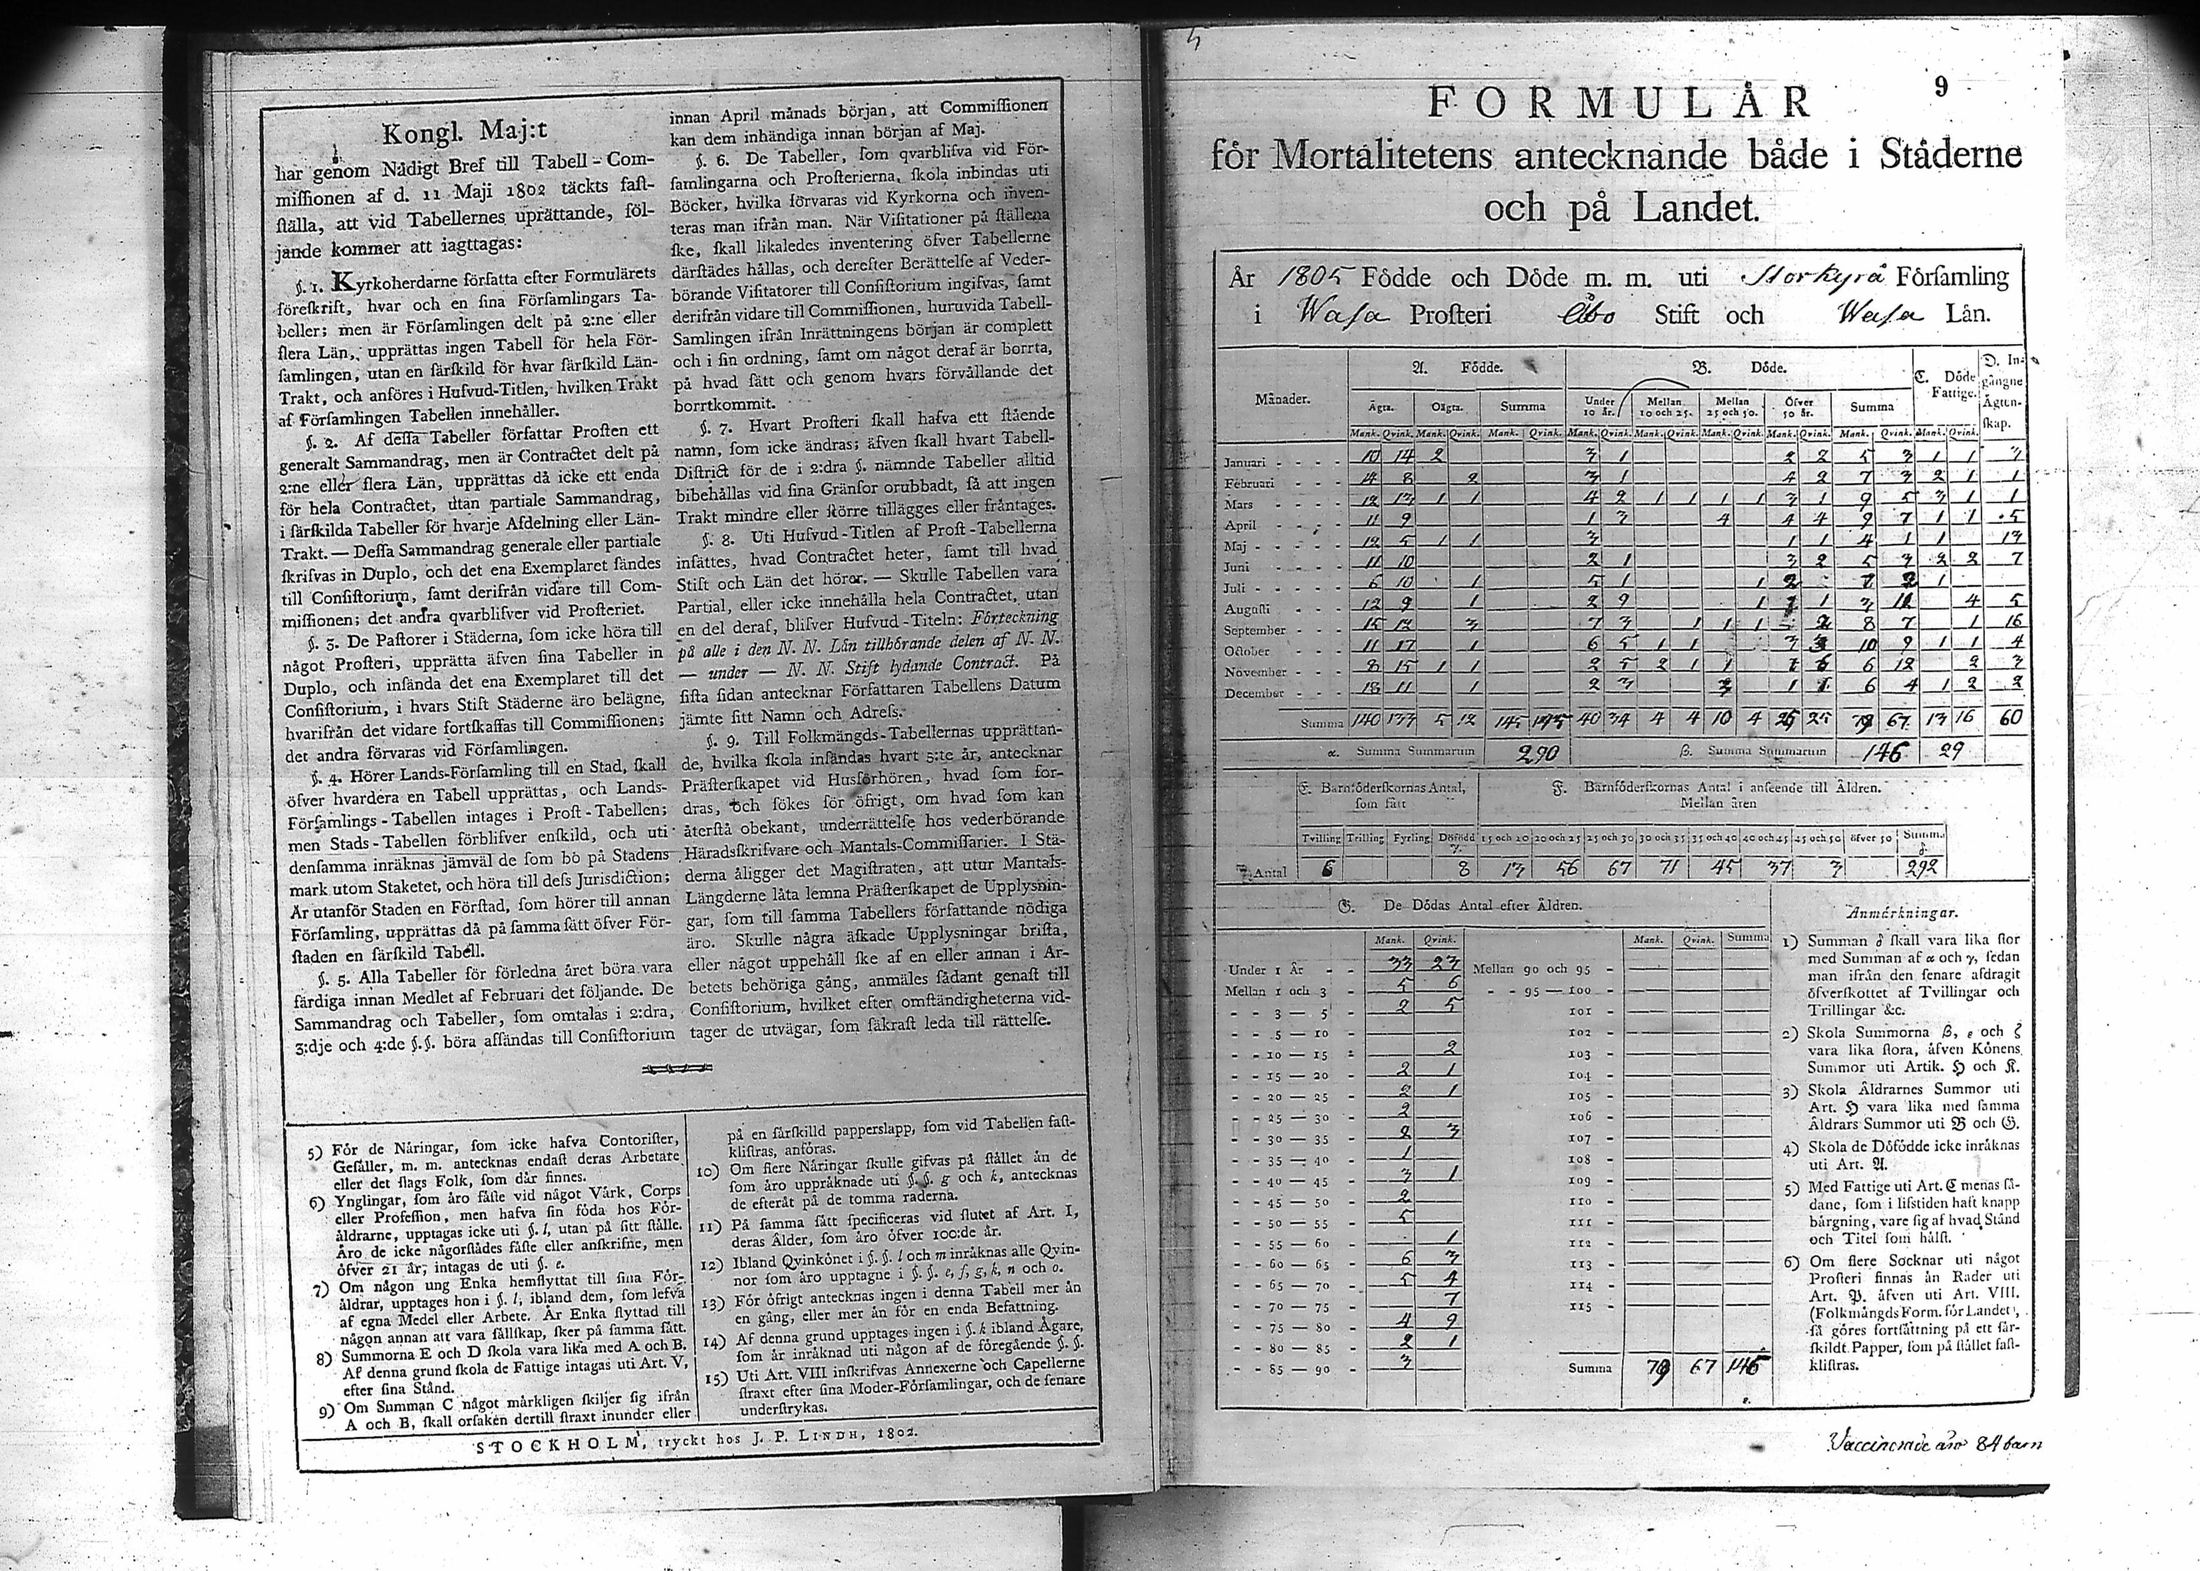 Kongl. Maj:t
har genom Nådigt Bref till Tabell-Com-
missionen af d. 11 Maji 1802 täckts fast-
ställa, att vid Tabellernes upprättande, föl-
jande kommer att iagttagas:
§. 1. Kyrkoherdarne författa efter Formulärets
föreskrift, hvar och en sina Församlingars Ta-
beller; men är Församlingen delt på 2:ne eller
flera Län, upprättas ingen Tabell för hela För-
samlingen, utan en särskild för hvar särskild Län-
Trakt, och anföres i Hufvud-Titlen, hvilken Trakt
af Församlingen Tabellen innehåller.
§. 2. Af dessa Tabeller författar Prosten ett
generalt Sammandrag, men är Contractet delt på
2:ne eller flera Län, upprättas då icke ett enda
för hela Contractet, utan partiale Sammandrag,
i särskilda Tabeller för hvarje Afdelning eller Län-
Trakt. — Dessa Sammandrag generale eller partiale
skrifvas in Duplo, och det ena Exemplaret sändes
till Consistorium, samt derifrån vidare till Com-
missionen; det andra qvarblifver vid Prosteriet.
§. 3. De Pastorer i Städerna, som icke höra till
något Prosteri, upprätta äfven sina Tabeller in
Duplo, och insända det ena Exemplaret till det
Consistorium, i hvars Stift Städerne äro belägne,
hvarifrån det vidare fortskaffas till Commissionen;
det andra förvaras vid Församlingen.
§. 4. Hörer Lands-Församling till en Stad, skall
öfver hvardera en Tabell upprättas, och Lands-
Församlings-Tabellen intages i Prost-Tabellen;
men Stads-Tabellen förblifver enskild, och uti
densamma inräknas jämväl de som bo på Stadens
mark utom Staketet, och höra till dess Jurisdiction;
Är utanför Staden en Förstad, som hörer till annan
Församling, upprättas då på samma sätt öfver För-
staden en särskild Tabell.
§. 5. Alla Tabeller för förledna året böra vara
färdiga innan Medlet af Februari det följande. De
Sammandrag och Tabeller, som omtalas i 2:dra,
3:dje och 4:de §.§. böra afsändas till Consistorium
innan April månads början, att Commissionen
kan dem inhändiga innan början af Maj.
§. 6. De Tabeller, som qvarblifva vid För-
samlingarna och Prosterierna, skola inbindas uti
Böcker, hvilka förvaras vid Kyrkorna och inven-
teras man ifrån man. När Visitationer på ställena
ske, skall likaledes inventering öfver Tabellerne
därstädes hållas, och derefter Berättelse af Veder-
börande Visitatorer till Consistorium ingifvas, samt
derifrån vidare till Commissionen, huruvida Tabell-
Samlingen ifrån Inrättningens början är complett
och i sin ordning, samt om något deraf är borrta,
på hvad sätt och genom hvars förvållande det
borrtkommit.
§. 7. Hvart Prosteri skall hafva ett stående
namn, som icke ändras; äfven skall hvart Tabell-
District för de i 2:dra §. nämnde Tabeller alltid
bibehållas vid sina Gränsor orubbadt, så att ingen
Trakt mindre eller större tillägges eller fråntages.
§. 8. Uti Hufvud-Titlen af Prost-Tabellerna
insättes, hvad Contractet heter, samt till hvad
Stift och Län det hörer. — Skulle Tabellen vara
Partial, eller icke innehålla hela Contractet, utan
en del deraf, blifver Hufvud-Titeln: Förteckning
på alle i den N. N. Län tillhörande delen af N. N.
— under — N. N. Stift lydande Contract. På
sista sidan antecknar Författaren Tabellens Datum
jämte sitt Namn och Adress.
§. 9. Till Folkmängds-Tabellernas upprättan-
de, hvilka skola insändas hvart 5:te år, antecknar
Prästerskapet vid Husförhören, hvad som for-
dras, och sökes för öfrigt, om hvad som kan
återstå obekant, underrättelse hos vederbörande
Häradsskrifvare och Mantals-Commissarier. I Stä-
derna åligger det Magistraten, att utur Mantals-
Längderne låta lemna Prästerskapet de Upplysnin-
gar, som till samma Tabellers författande nödiga
äro. Skulle några äskade Upplysningar brista,
eller något uppehåll ske af en eller annan i Ar-
betets behöriga gång, anmäles sådant genast till
Consistorium, hvilket efter omständigheterna vid-
tager de utvägar, som säkrast leda till rättelse.
5) För de Näringar, som icke hafva Contorister,
Gesäller, m. m. antecknas endast deras Arbetare
eller det slags Folk, som där finnes.
6) Ynglingar, som äro fäste vid något Värk, Corps
eller Profession, men hafva sin föda hos För-
äldrarne, upptagas icke uti §. l, utan på sitt ställe.
Äro de icke någorstädes fäste eller anskrifne, men
öfver 21 år, intagas de uti §. e.
7) Om någon ung Enka hemflyttat till sina För-
äldrar, upptages hon i §. l, ibland dem, som lefva
af egna Medel eller Arbete. Är Enka flyttad till
någon annan att vara sällskap, sker på samma sätt.
8) Summorna E och D skola vara lika med A och B.
Af denna grund skola de Fattige intagas uti Art. V,
efter sina Stånd.
9) Om Summan C något märkligen skiljer sig ifrån
A och B, skall orsaken dertill straxt inunder eller
på en särskilld papperslapp, som vid Tabellen fast-
klistras, anföras.
10) Om flere Näringar skulle gifvas på stället än de
som äro uppräknade uti §. §. g och k, antecknas
de efteråt på de tomma raderna.
11) På samma sätt specificeras vid slutet af Art. I,
deras Ålder, som äro öfver 100:de år.
12) Ibland Qvinkönet i §. §. l och m inräknas alle Qvin-
nor som äro upptagne i §. §. e, f, g, k, n och o.
13) För öfrigt antecknas ingen i denna Tabell mer än
en gång, eller mer än för en enda Befattning.
14) Af denna grund upptages ingen i §. k ibland Ägare,
som är inräknad uti någon af de föregående §. §.
15) Uti Art. VIII inskrifvas Annexerne och Capellerne
straxt efter sina Moder-Församlingar, och de senare
understrykas.
STOCKHOLM, tryckt hos J. P. LINDH, 1802.
9
FORMULÄR
för Mortalitetens antecknande både i Städerne
och på Landet.
År 1805 Födde och Döde m. m. uti Storkyrå Församling
i Wasa Prosteri Åbo Stift och Wasa Län.
Månader. A. Födde. B. Döde. C. Döde Fattige. D. Ingångne Ägtenskap.
Ägta. Oägta. Summa Under 10 år. Mellan 10 och 25. Mellan 25 och 50. Öfver 50 år. Summa
Mank. Qvink. Mank. Qvink. Mank. Qvink. Mank. Qvink. Mank. Qvink. Mank. Qvink. Mank. Qvink. Mank. Qvink. Mank. Qvink.
Januari 10 14 2 3 1 2 2 5 3 1 1 3
Februari 14 8 2 3 1 4 2 7 3 2 1 1
Mars 12 13 1 1 4 2 1 1 1 1 3 1 9 5 3 1 1
April 11 9 1 3 4 4 4 9 7 1 1 5
Maj 12 5 1 1 3 1 1 4 1 1 13
Juni 11 10 2 1 3 2 5 3 2 2 7
Juli 6 10 1 5 1 1 2 7 2 1
Augusti 12 9 1 2 9 1 1 3 4 5
September 15 12 3 7 3 1 1 1 2 8 7 1 16
October 11 17 1 6 5 1 1 3 3 10 9 1 1 4
November 8 15 1 1 2 5 2 1 1 1 6 6 12 2 3
December 18 11 1 2 3 3 1 1 6 4 1 2 2
Summa 140 133 5 12 145 145 40 34 4 4 10 4 25 25 79 67 13 16 60
α. Summa Summarum 290 β. Summa Summarum 146 29
E. Barnföderskornas Antal, som fått
F. Barnföderskornas Antal i anseende till Åldren.
Mellan åren
Tvilling Trilling Fyrling Dödfödd γ. 15 och 20 20 och 25 25 och 30 30 och 35 35 och 40 40 och 45 45 och 50 öfver 50 Summa δ.
Antal 6 8 13 56 67 71 45 37 3 292
G. De Dödas Antal efter Åldren.
Mank. Qvink.
Under 1 År 33 23
Mellan 1 och 3 5 6
3 — 5 2 5
5 — 10
10 — 15 2
15 — 20 2 1
20 — 25 2 1
25 — 30 2
30 — 35 2 3
35 — 40 1
40 — 45 3 1
45 — 50 2
50 — 55 5
55 — 60 1
60 — 65 6 3
65 — 70 5 4
70 — 75 7
75 — 80 4 9
80 — 85 2 1
85 — 90 3
Mank. Qvink. Summa
Mellan 90 och 95
95 — 100
101
102
103
104
105
106
107
108
109
110
111
112
113
114
115
Summa 79 67 146
Anmärkningar.
1) Summan δ skall vara lika stor
med Summan af α och γ, sedan
man ifrån den senare afdragit
öfverskottet af Tvillingar och
Trillingar &c.
2) Skola Summorna β, ε och ζ
vara lika stora, äfven Könens
Summor uti Artik. H och K.
3) Skola Åldrarnes Summor uti
Art. H vara lika med samma
Åldrars Summor uti B och G.
4) Skola de Döfödde icke inräknas
uti Art. A.
5) Med Fattige uti Art. C menas så-
dane, som i lifstiden haft knapp
bärgning, vare sig af hvad Stånd
och Titel som hälst.
6) Om flere Socknar uti något
Prosteri finnas än Rader uti
Art. P. äfven uti Art. VIII.
(Folkmängds Form. för Landet),
så göres fortsättning på ett sär-
skildt Papper, som på stället fast-
klistras.
Vaccinerade äro 84 barn